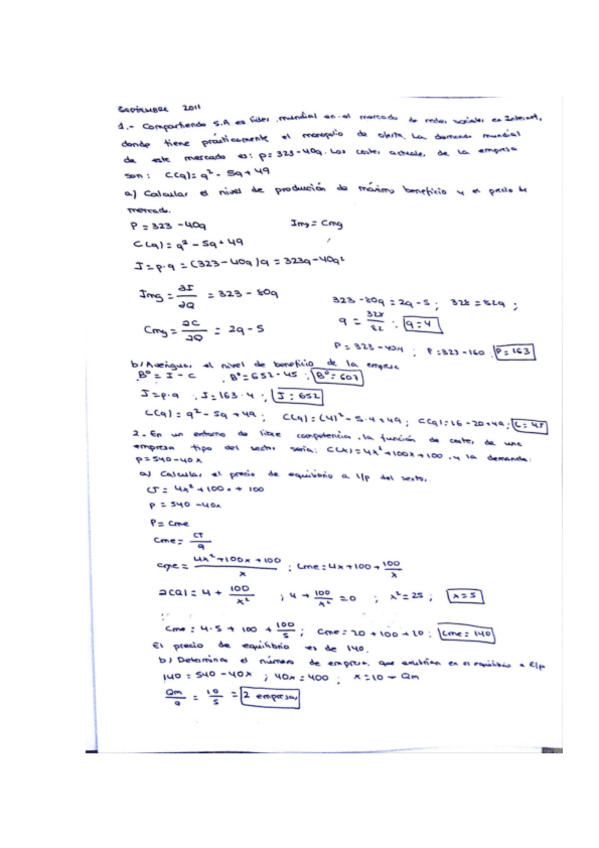 SEPTIEMBRE 2011
1.- Compartiendo S.A es líder mundial en el mercado de redes sociales en Internet,
donde tiene prácticamente el monopolio de oferta. La demanda mundial
de este mercado es: p=323-40q. Los costes actuales de la empresa
son: C(q)=q²-5q+49
a) Calcular el nivel de producción de máximo beneficio y el precio de
mercado.
P=323-40q Img=Cmg
C(q)=q²-5q+49
I=p·q=(323-40q)q=323q-40q²
Img = ∂I/∂Q = 323-80q 323-80q=2q-5; 328=82q;
Cmg = ∂C/∂Q = 2q-5 q = 328/82; q=4
P=323-40·4; P=323-160; P=163
b) Averiguar el nivel de beneficio de la empresa
Bº=I-C; Bº=652-45; Bº=607
I=p·q; I=163·4; I=652
C(q)=q²-5q+49; C(q)=(4)²-5·4+49; C(q)=16-20+49; C=45
2. En un entorno de libre competencia, la función de costes de una
empresa tipo del sector sería: C(x)=4x²+100x+100, y la demanda:
p=540-40x
a) Calcular el precio de equilibrio a l/p del sector.
CT=4x²+100x+100
P=540-40x
P=Cme
Cme = CT/q
Cme = (4x²+100x+100)/x; Cme=4x+100+100/x
∂C(q)=4+100/x²; 4+100/x²=0; x²=25; x=5
Cme=4·5+100+100/5; Cme=20+100+20; Cme=140
El precio de equilibrio es de 140.
b) Determina el número de empresas que existirían en el equilibrio a l/p
140=540-40x; 40x=400; x=10 → Qm
Qm/q = 10/5 = 2 empresas